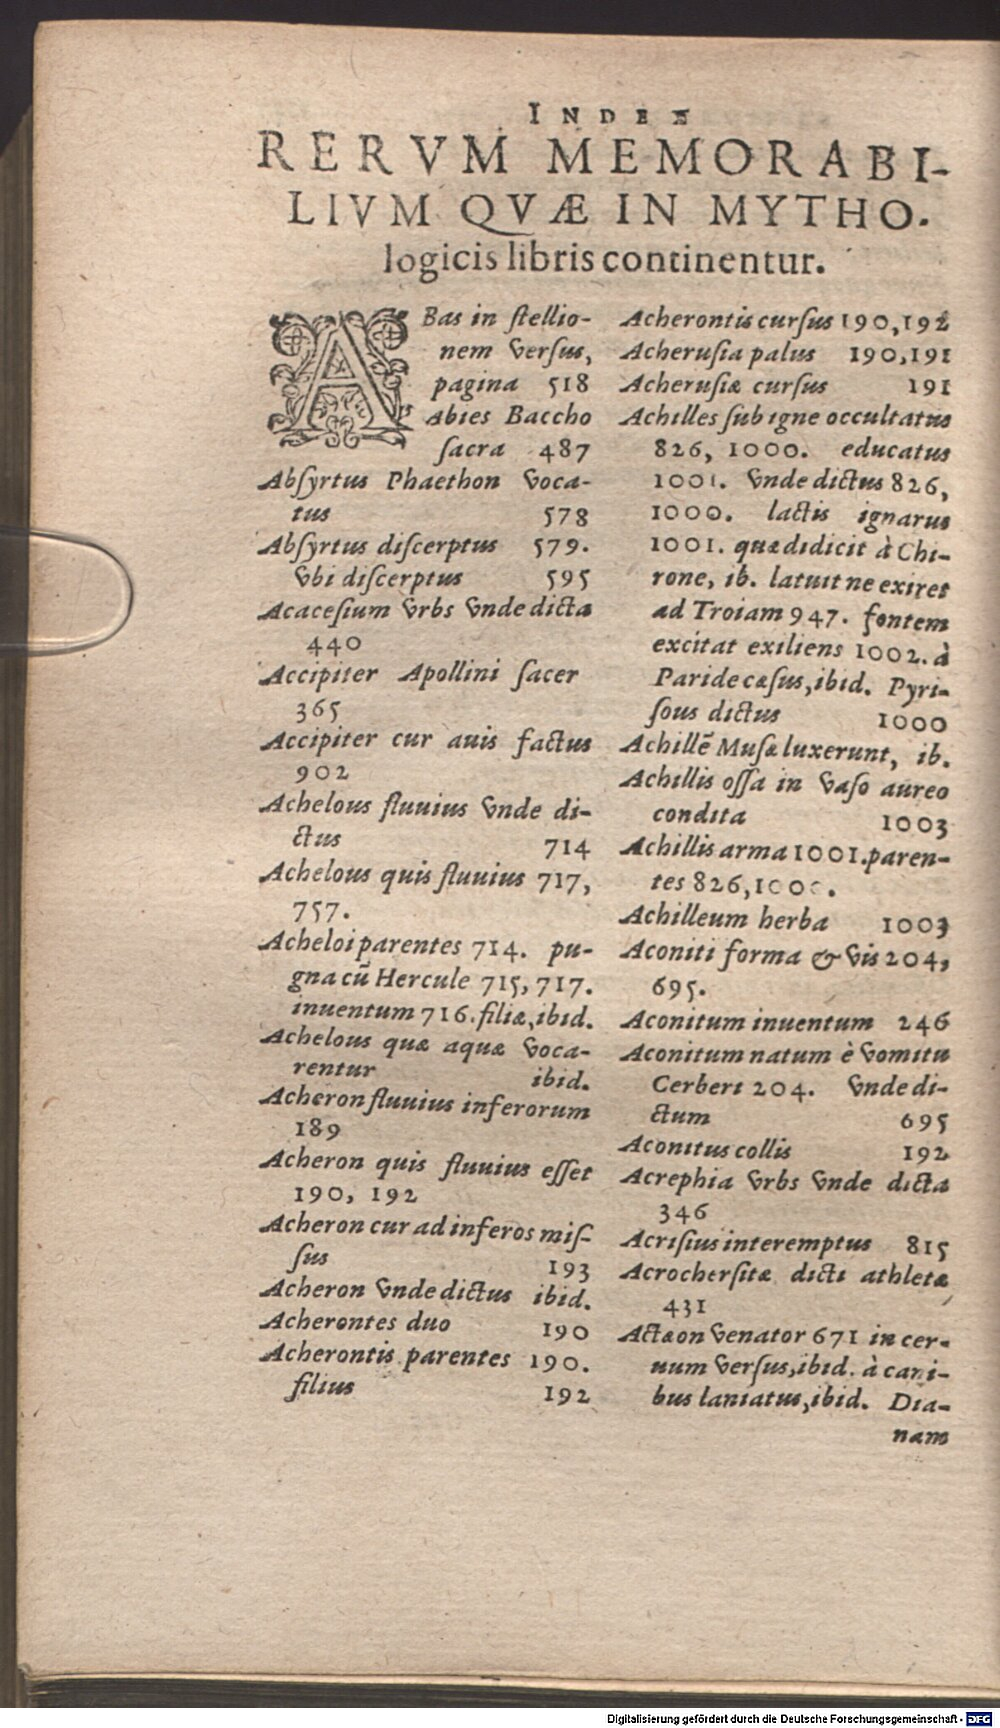 INDEX
RERVM MEMORABI-
LIVM QVÆ IN MYTHO-
logicis libris continentur.
ABas in ſtellio-
nem verſus,
pagina 518
Abies Baccho
ſacra 487
Abſyrtus Phaethon voca-
tus 578
Abſyrtus diſcerptus 579.
vbi diſcerptus 595
Acaceſium vrbs vnde dicta
440
Accipiter Apollini ſacer
365
Accipiter cur auis factus
902
Achelous fluuius vnde di-
ctus 714
Achelous quis fluuius 717,
757.
Acheloi parentes 714. pu-
gna cū Hercule 715, 717.
inuentum 716. filiæ, ibid.
Achelous quæ aquæ voca-
rentur ibid.
Acheron fluuius inferorum
189
Acheron quis fluuius eſſet
190, 192
Acheron cur ad inferos miſ-
ſus 193
Acheron vnde dictus ibid.
Acherontes duo 190
Acherontis parentes 190.
filius 192
Acherontis curſus 190, 192
Acheruſia palus 190, 191
Acheruſiæ curſus 191
Achilles ſub igne occultatus
826, 1000. educatus
1001. vnde dictus 826,
1000. lactis ignarus
1001. quæ didicit à Chi-
rone, ib. latuit ne exiret
ad Troiam 947. fontem
excitat exiliens 1002. à
Paride cæſus, ibid. Pyri-
ſous dictus 1000
Achillē Muſæ luxerunt, ib.
Achillis oſſa in vaſo aureo
condita 1003
Achillis arma 1001. paren-
tes 826, 1000.
Achilleum herba 1003
Aconiti forma & vis 204,
695.
Aconitum inuentum 246
Aconitum natum è vomitu
Cerberi 204. vnde di-
ctum 695
Aconitus collis 192
Acrephia vrbs vnde dicta
346
Acriſius interemptus 815
Acrocherſitæ dicti athletæ
431
Actæon venator 671 in cer-
uum verſus, ibid. à cani-
bus laniatus, ibid. Dia-
nam
Digitalisierung gefördert durch die Deutsche Forschungsgemeinschaft - DFG